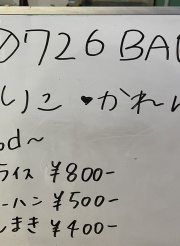 726 BA
りこ ♥かれん
od~
ライス ¥800-
ーハン ¥500-
しまき ¥400-